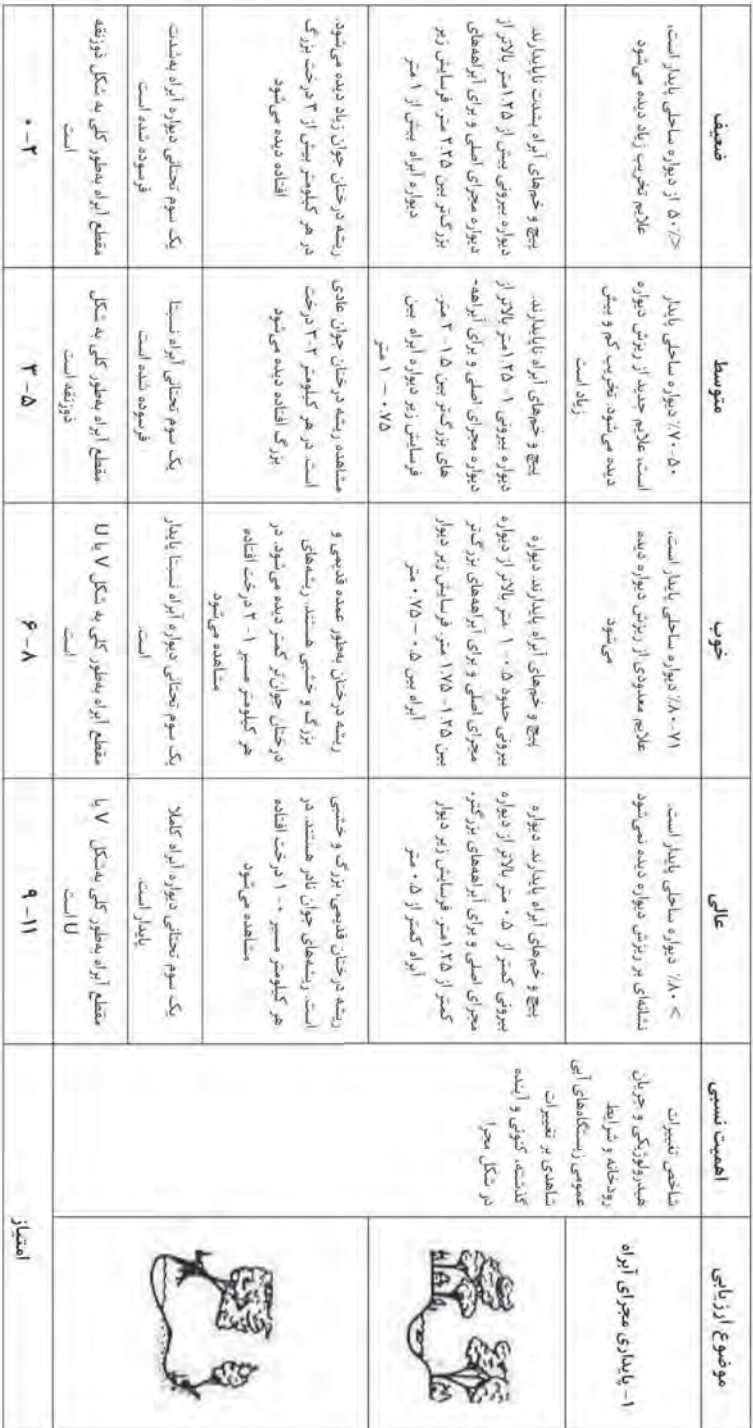 موضوع ارزیابی
اهمیت نسبی
عالی
خوب
متوسط
ضعیف
۱- پایداری مجرای آبراه
شاخص تغییرات
هیدرولوژیکی و جریان
رودخانه و شرایط
عمومی زیستگاه‌های آبی
شاهدی بر تغییرات
گذشته، کنونی و آینده
در شکل مجرا
> ۸۰٪ دیواره ساحلی پایدار است.
نشانه‌ای بر ریزش دیواره دیده نمی‌شود
۷۱-۸۰٪ دیواره ساحلی پایدار است،
علایم معدودی از ریزش دیواره دیده
می‌شود
۵۰-۷۰٪ دیواره ساحلی پایدار
است، علایم جدید از ریزش دیواره
دیده می‌شود، تخریب کم و بیش
زیاد است
<۵۰٪ از دیواره ساحلی پایدار است،
علایم تخریب زیاد دیده می‌شود
پیچ و خم‌های آبراه پایدارند. دیواره
بیرونی کمتر از ۰.۵ متر بالاتر از دیواره
مجرای اصلی و برای آبراهه‌های بزرگتر،
کمتر از ۱.۲۵متر. فرسایش زیر دیوار
آبراه کمتر از ۰.۵ متر
پیچ و خم‌های آبراه پایدارند. دیواره
بیرونی حدود ۰.۵- ۱ متر بالاتر از دیواره
مجرای اصلی و برای آبراهه‌های بزرگ‌تر
بین ۱.۲۵- ۱.۷۵ متر. فرسایش زیر دیوار
آبراه بین ۰.۵ - ۰.۷۵ متر
پیچ و خم‌های آبراه ناپایدارند.
دیواره بیرونی ۱- ۱.۲۵متر بالاتر از
دیواره مجرای اصلی و برای آبراهه-
های بزرگ‌تر بین ۱.۵- ۲ متر.
فرسایش زیر دیواره آبراه بین
۰.۷۵ - ۱ متر
پیچ و خم‌های آبراه بشدت ناپایدارند.
دیواره بیرونی بیش از ۱.۲۵متر بالاتر از
دیواره مجرای اصلی و برای آبراهه‌های
بزرگ‌تر بین ۲.۲۵ متر. فرسایش زیر
دیواره آبراه بیش از ۱ متر
ریشه درختان قدیمی، بزرگ و خشبی
است. ریشه‌های جوان نادر هستند. در
هر کیلومتر مسیر ۰- ۱ درخت افتاده
مشاهده می‌شود
ریشه درختان بطور عمده قدیمی و
بزرگ و خشبی هستند. ریشه‌های
درختان جوان‌تر کمتر دیده می‌شود. در
هر کیلومتر مسیر ۱- ۲ درخت افتاده
مشاهده می‌شود
مشاهده ریشه درختان جوان عادی
است. در هر کیلومتر ۲-۳ درخت
بزرگ افتاده دیده می‌شود
ریشه درختان جوان زیاد دیده می‌شود.
در هر کیلومتر بیش از ۳ درخت بزرگ
افتاده دیده می‌شود
یک سوم تحتانی دیواره آبراه کاملا
پایدار است.
یک سوم تحتانی دیواره آبراه نسبتا پایدار
است.
یک سوم تحتانی آبراه نسبتا
فرسوده شده است
یک سوم تحتانی دیواره آبراه به‌شدت
فرسوده شده است
مقطع آبراه به‌طور کلی به‌شکل V یا
U است
مقطع آبراه به‌طور کلی به شکل V یا U
است
مقطع آبراه به‌طور کلی به شکل
ذوزنقه است
مقطع آبراه به‌طور کلی به شکل ذوزنقه
است
امتیاز
۹ -۱۱
۶-۸
۳ -۵
۰-۲